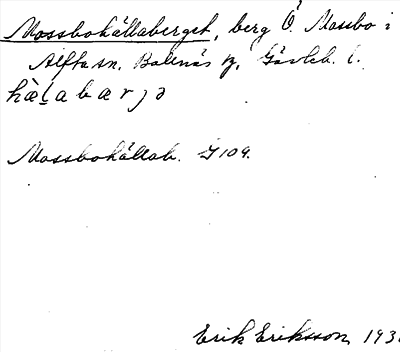 Mossbohällaberget, berg Ö. Mossbo i
Alfta sn. Bollnäs tg. Gävleb. l.
hæ̀ḷabærjə
Mossbohällab. G109.
Erik Eriksson, 193